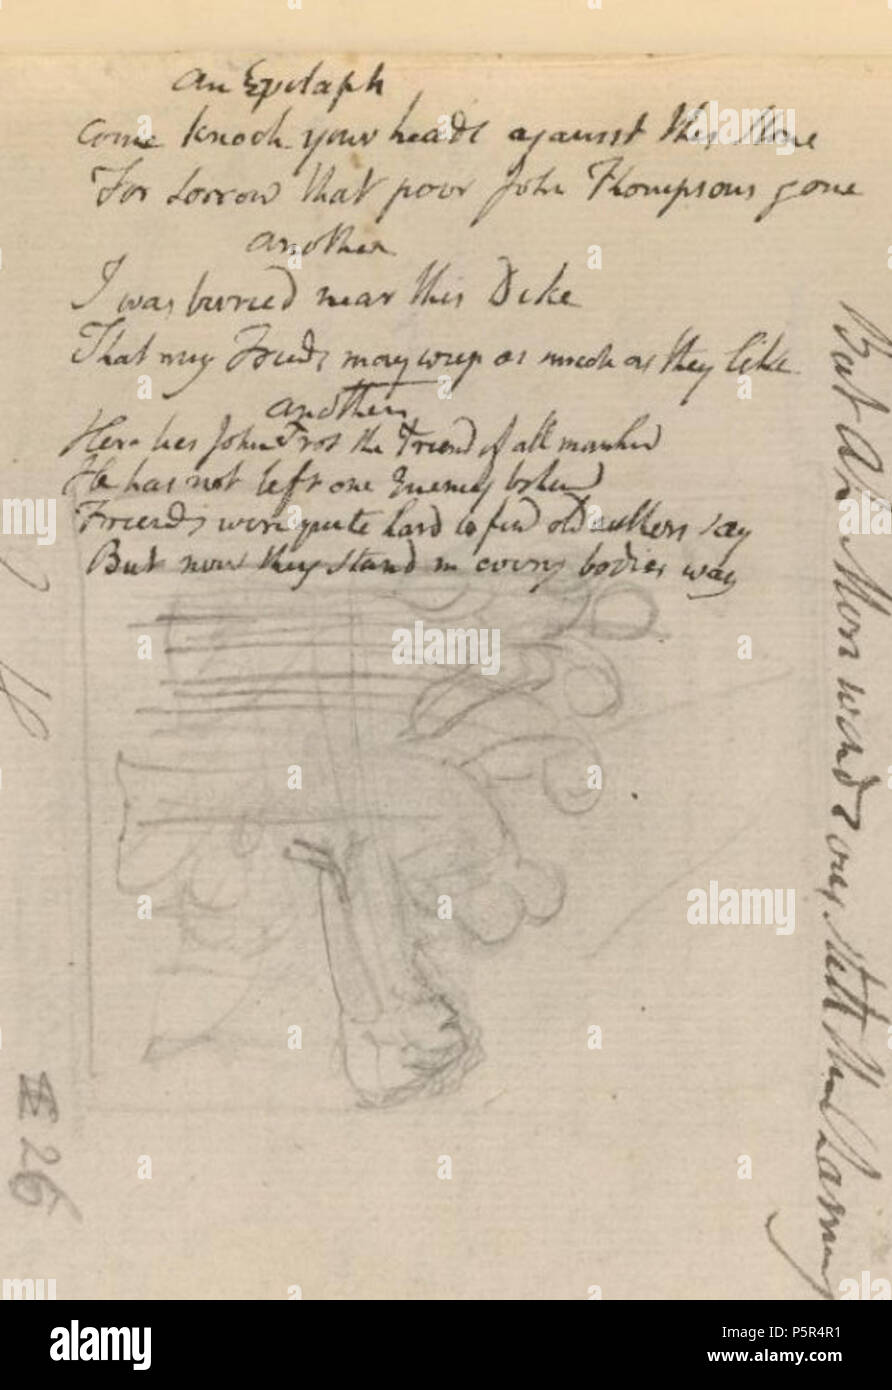 an Epitaph
Come knock your heads against this stone
For sorrow that poor John Thompsons gone
another
I was buried near this Dike
That my Friends may weep as much as they like
another
Here lies John Trot the Friend of all mankind
He has not left one Enemy behind
Friends were quite hard to find old authors say
But now they stand in every bodies way
But Ah
& 26
alamy
Image ID: P5R4R1
www.alamy.com